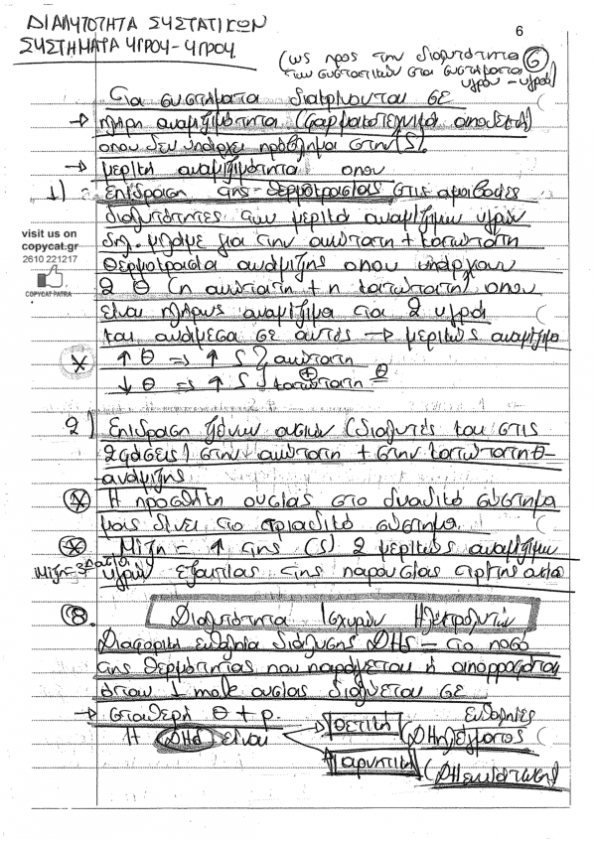 ΔΙΑΛΥΤΟΤΗΤΑ ΣΥΣΤΑΤΙΚΩΝ
ΣΥΣΤΗΜΑΤΑ ΥΓΡΟΥ - ΥΓΡΟΥ.
6
(ως προς την διαλυτότητα 6
των συστατικών στα συστήματα
υγρού - υγρού)
Τα συστήματα διακρίνονται σε
→ πλήρη αναμιξιμότητα (φαρμακοτεχνικά αποδεκτή)
όπου δεν υπάρχει πρόβλημα στην (S).
→ μερική αναμιξιμότητα όπου
1) Επίδραση της θερμοκρασίας στις αμοιβαίες
διαλυτότητες των μερικά αναμίξιμων υγρών
δηλ. μιλάμε για την ανώτατη + κατώτατη
θερμοκρασία ανάμιξης όπου υπάρχουν
2 Θ (η ανώτατη + η κατώτατη) όπου
είναι πλήρως αναμίξιμα τα 2 υγρά
και ανάμεσα σε αυτές → μερικώς αναμίξιμα
visit us on
copycat.gr
2610 221217
COPYCAT PATRA
* ↑ Θ => ↑ S } ανώτατη
↓ Θ => ↑ S } κατώτατη Θ
2) Επίδραση ξένων ουσιών (διαλυτές και στις
2 φάσεις) στην ανώτατη + στην κατώτατη Θ
ανάμιξης
* Η προσθήκη ουσίας στο δυαδικό σύστημα
μας δίνει το τριαδικό σύστημα.
* Μίξη = ↑ της (S) 2 μερικώς αναμίξιμων
υγρών εξαιτίας της παρουσίας τρίτης
8. Διαλυτότητα Ισχυρών Ηλεκτρολυτών
Διαφορική ενθαλπία διάλυσης ΔΗs = το ποσό
της θερμότητας που παράγεται ή απορροφάται
όταν 1 mole ουσίας διαλύεται σε
→ σταθερή Θ + p.
Ενθαλπίες
Η ΔΗs είναι
→ Θετική (ΔΗπλέγματος)
→ Αρνητική (ΔΗενυδάτωσης)